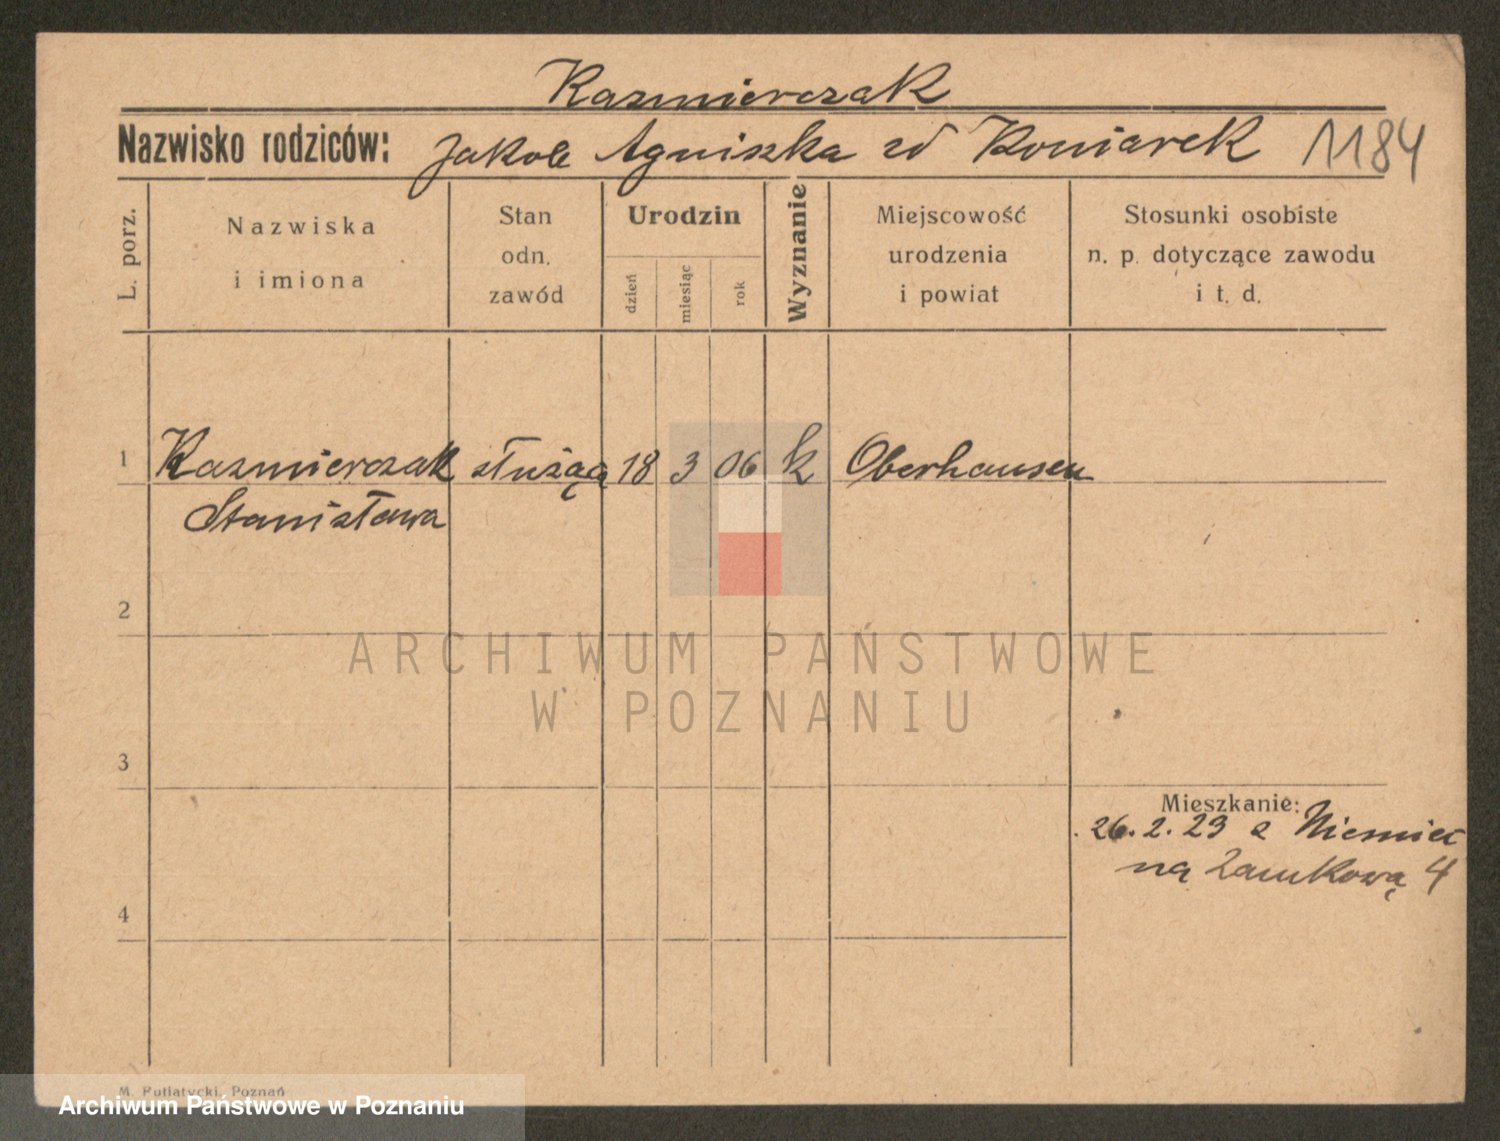 Kazmierczak
Nazwisko rodziców: Jakób Agniszka zd Koniarek 1184
L. porz.
Nazwiska
i imiona
Stan
odn.
zawód
Urodzin
dzień
miesiąc
rok
Wyznanie
Miejscowość
urodzenia
i powiat
Stosunki osobiste
n. p. dotyczące zawodu
i t. d.
1 Kazmierczak służąą 18 3 06 k Oberhausen
Stanisława
2
ARCHIWUM PAŃSTWOWE
W POZNANIU
3
Mieszkanie:
26.2.23 z Niemiec
na Zamkową 4
4
M. Putiatycki, Poznań
Archiwum Państwowe w Poznaniu